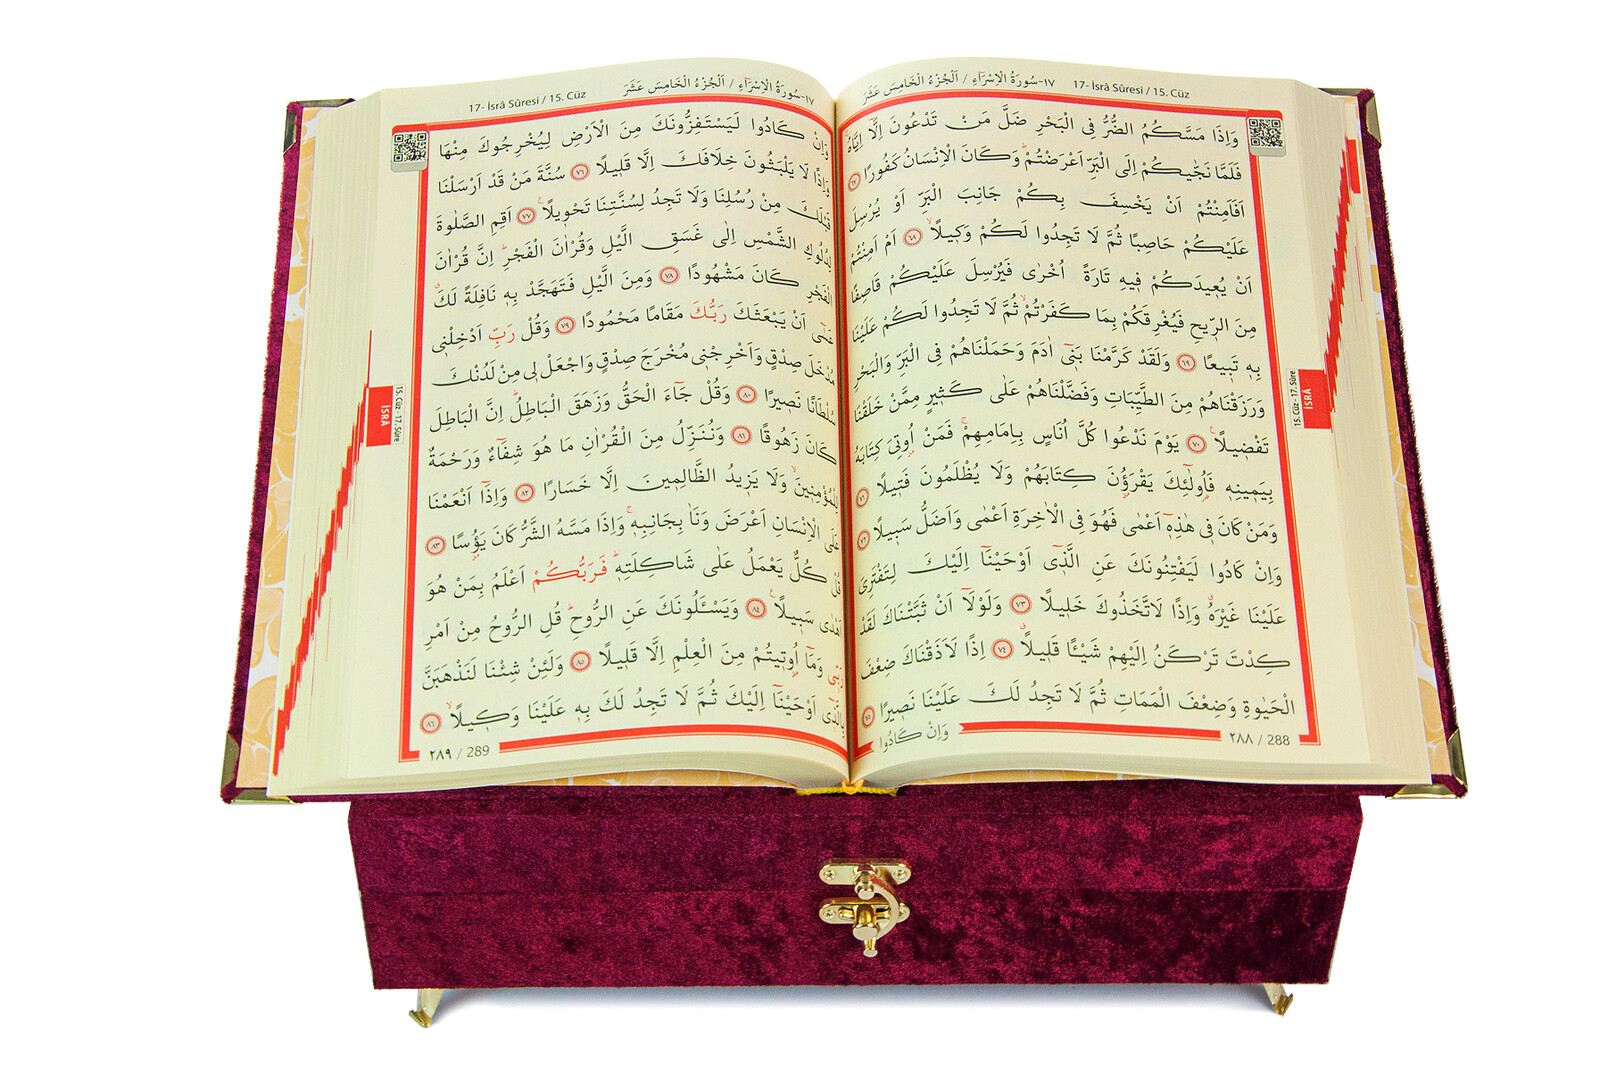 ١٧-سُورَةُ الْاِسْرَاءِ / اَلْجُزْءُ الْخَامِسَ عَشَرَ 17- İsrâ Sûresi / 15. Cüz
وَاِذَا مَسَّكُمُ الضُّرُّ فِي الْبَحْرِ ضَلَّ مَنْ تَدْعُونَ اِلَّٓا اِيَّاهُۚ
فَلَمَّا نَجّٰيكُمْ اِلَى الْبَرِّ اَعْرَضْتُمْۜ وَكَانَ الْاِنْسَانُ كَفُورًا ﴿٦٧﴾
اَفَاَمِنْتُمْ اَنْ يَخْسِفَ بِكُمْ جَانِبَ الْبَرِّ اَوْ يُرْسِلَ
عَلَيْكُمْ حَاصِبًا ثُمَّ لَا تَجِدُوا لَكُمْ وَكٖيلًاۙ ﴿٦٨﴾ اَمْ اَمِنْتُمْ
اَنْ يُعٖيدَكُمْ فٖيهِ تَارَةً اُخْرٰى فَيُرْسِلَ عَلَيْكُمْ قَاصِفًا
مِنَ الرّٖيحِ فَيُغْرِقَكُمْ بِمَا كَفَرْتُمْۙ ثُمَّ لَا تَجِدُوا لَكُمْ عَلَيْنَا
بِهٖ تَبٖيعًا ﴿٦٩﴾ وَلَقَدْ كَرَّمْنَا بَنٖٓي اٰدَمَ وَحَمَلْنَاهُمْ فِي الْبَرِّ وَالْبَحْرِ
وَرَزَقْنَاهُمْ مِنَ الطَّيِّبَاتِ وَفَضَّلْنَاهُمْ عَلٰى كَثٖيرٍ مِمَّنْ خَلَقْنَا
تَفْضٖيلًاۚ ﴿٧٠﴾ يَوْمَ نَدْعُوا كُلَّ اُنَاسٍ بِاِمَامِهِمْۚ فَمَنْ اُو۫تِيَ كِتَابَهُ
بِيَمٖينِهٖ فَاُو۬لٰٓئِكَ يَقْرَؤُ۫نَ كِتَابَهُمْ وَلَا يُظْلَمُونَ فَتٖيلًا ﴿٧١﴾
وَمَنْ كَانَ فٖي هٰذِهٖٓ اَعْمٰى فَهُوَ فِي الْاٰخِرَةِ اَعْمٰى وَاَضَلُّ سَبٖيلًا ﴿٧٢﴾
وَاِنْ كَادُوا لَيَفْتِنُونَكَ عَنِ الَّذٖٓي اَوْحَيْنَٓا اِلَيْكَ لِتَفْتَرِيَ
عَلَيْنَا غَيْرَهُۗ وَاِذًا لَاتَّخَذُوكَ خَلٖيلًا ﴿٧٣﴾ وَلَوْلَٓا اَنْ ثَبَّتْنَاكَ لَقَدْ
كِدْتَ تَرْكَنُ اِلَيْهِمْ شَيْـًٔا قَلٖيلًاۗ ﴿٧٤﴾ اِذًا لَاَذَقْنَاكَ ضِعْفَ
الْحَيٰوةِ وَضِعْفَ الْمَمَاتِ ثُمَّ لَا تَجِدُ لَكَ عَلَيْنَا نَصٖيرًا ﴿٧٥﴾
وَاِنْ كَادُوا
٢٨٨ / 288
15. Cüz - 17. Sûre
İSRÂ
17- İsrâ Sûresi / 15. Cüz ١٧-سُورَةُ الْاِسْرَاءِ / اَلْجُزْءُ الْخَامِسَ عَشَرَ
وَاِنْ كَادُوا لَيَسْتَفِزُّونَكَ مِنَ الْاَرْضِ لِيُخْرِجُوكَ مِنْهَا
وَاِذًا لَا يَلْبَثُونَ خِلَافَكَ اِلَّا قَلٖيلًا ﴿٧٦﴾ سُنَّةَ مَنْ قَدْ اَرْسَلْنَا
قَبْلَكَ مِنْ رُسُلِنَا وَلَا تَجِدُ لِسُنَّتِنَا تَحْوٖيلًا۟ ﴿٧٧﴾ اَقِمِ الصَّلٰوةَ
لِدُلُوكِ الشَّمْسِ اِلٰى غَسَقِ الَّيْلِ وَقُرْاٰنَ الْفَجْرِۜ اِنَّ قُرْاٰنَ
الْفَجْرِ كَانَ مَشْهُودًا ﴿٧٨﴾ وَمِنَ الَّيْلِ فَتَهَجَّدْ بِهٖ نَافِلَةً لَكَۗ
عَسٰٓى اَنْ يَبْعَثَكَ رَبُّكَ مَقَامًا مَحْمُودًا ﴿٧٩﴾ وَقُلْ رَبِّ اَدْخِلْنٖي
مُدْخَلَ صِدْقٍ وَاَخْرِجْنٖي مُخْرَجَ صِدْقٍ وَاجْعَلْ لٖي مِنْ لَدُنْكَ
سُلْطَانًا نَصٖيرًا ﴿٨٠﴾ وَقُلْ جَٓاءَ الْحَقُّ وَزَهَقَ الْبَاطِلُۜ اِنَّ الْبَاطِلَ
كَانَ زَهُوقًا ﴿٨١﴾ وَنُنَزِّلُ مِنَ الْقُرْاٰنِ مَا هُوَ شِفَٓاءٌ وَرَحْمَةٌ
لِلْمُؤْمِنٖينَۙ وَلَا يَزٖيدُ الظَّالِمٖينَ اِلَّا خَسَارًا ﴿٨٢﴾ وَاِذَٓا اَنْعَمْنَا
عَلَى الْاِنْسَانِ اَعْرَضَ وَنَاٰ بِجَانِبِهٖۚ وَاِذَا مَسَّهُ الشَّرُّ كَانَ يَؤُ۫سًا ﴿٨٣﴾
قُلْ كُلٌّ يَعْمَلُ عَلٰى شَاكِلَتِهٖۜ فَرَبُّكُمْ اَعْلَمُ بِمَنْ هُوَ
اَهْدٰى سَبٖيلًا۟ ﴿٨٤﴾ وَيَسْـَٔلُونَكَ عَنِ الرُّوحِۜ قُلِ الرُّوحُ مِنْ اَمْرِ
رَبّٖي وَمَٓا اُو۫تٖيتُمْ مِنَ الْعِلْمِ اِلَّا قَلٖيلًا ﴿٨٥﴾ وَلَئِنْ شِئْنَا لَنَذْهَبَنَّ
بِالَّذٖٓي اَوْحَيْنَٓا اِلَيْكَ ثُمَّ لَا تَجِدُ لَكَ بِهٖ عَلَيْنَا وَكٖيلًاۙ ﴿٨٦﴾
٢٨٩ / 289
15. Cüz - 17. Sûre
İSRÂ